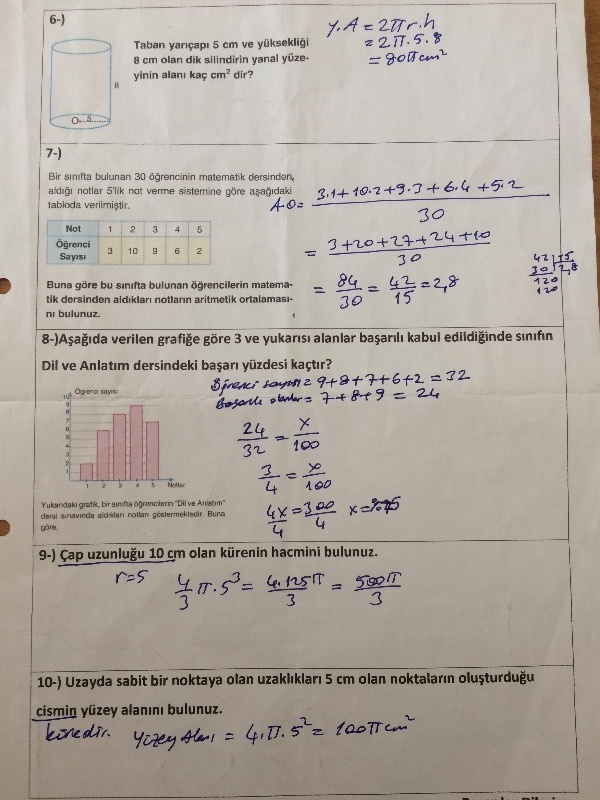 6-)
Taban yarıçapı 5 cm ve yüksekliği
8 cm olan dik silindirin yanal yüze-
yinin alanı kaç cm² dir?
8
O 5
Y.A = 2πr.h
= 2π.5.8
= 80π cm²
7-)
Bir sınıfta bulunan 30 öğrencinin matematik dersinden
aldığı notlar 5'lik not verme sistemine göre aşağıdaki
tabloda verilmiştir.
Not 1 2 3 4 5
Öğrenci Sayısı 3 10 9 6 2
Buna göre bu sınıfta bulunan öğrencilerin matema-
tik dersinden aldıkları notların aritmetik ortalaması-
nı bulunuz.
A.O = 3.1+10.2+9.3+6.4+5.2
30
= 3+20+27+24+10
30
= 84/30 = 42/15 = 2,8
42 15
30 2,8
120
120
8-)Aşağıda verilen grafiğe göre 3 ve yukarısı alanlar başarılı kabul edildiğinde sınıfın
Dil ve Anlatım dersindeki başarı yüzdesi kaçtır?
Öğrenci sayısı
10
9
8
7
6
5
4
3
2
1
1 2 3 4 5 Notlar
Yukarıdaki grafik, bir sınıfta öğrencilerin "Dil ve Anlatım"
dersi sınavında aldıkları notları göstermektedir. Buna
göre,
Öğrenci sayısı = 9+8+7+6+2 = 32
Başarılı olanlar = 7+8+9 = 24
24/32 = x/100
3/4 = x/100
4x/4 = 300/4 x=75
9-) Çap uzunluğu 10 cm olan kürenin hacmini bulunuz.
r=5
4/3 π.5³ = 4.125π/3 = 500π/3
10-) Uzayda sabit bir noktaya olan uzaklıkları 5 cm olan noktaların oluşturduğu
cismin yüzey alanını bulunuz.
küredir. Yüzey Alanı = 4.π.5² = 100π cm²